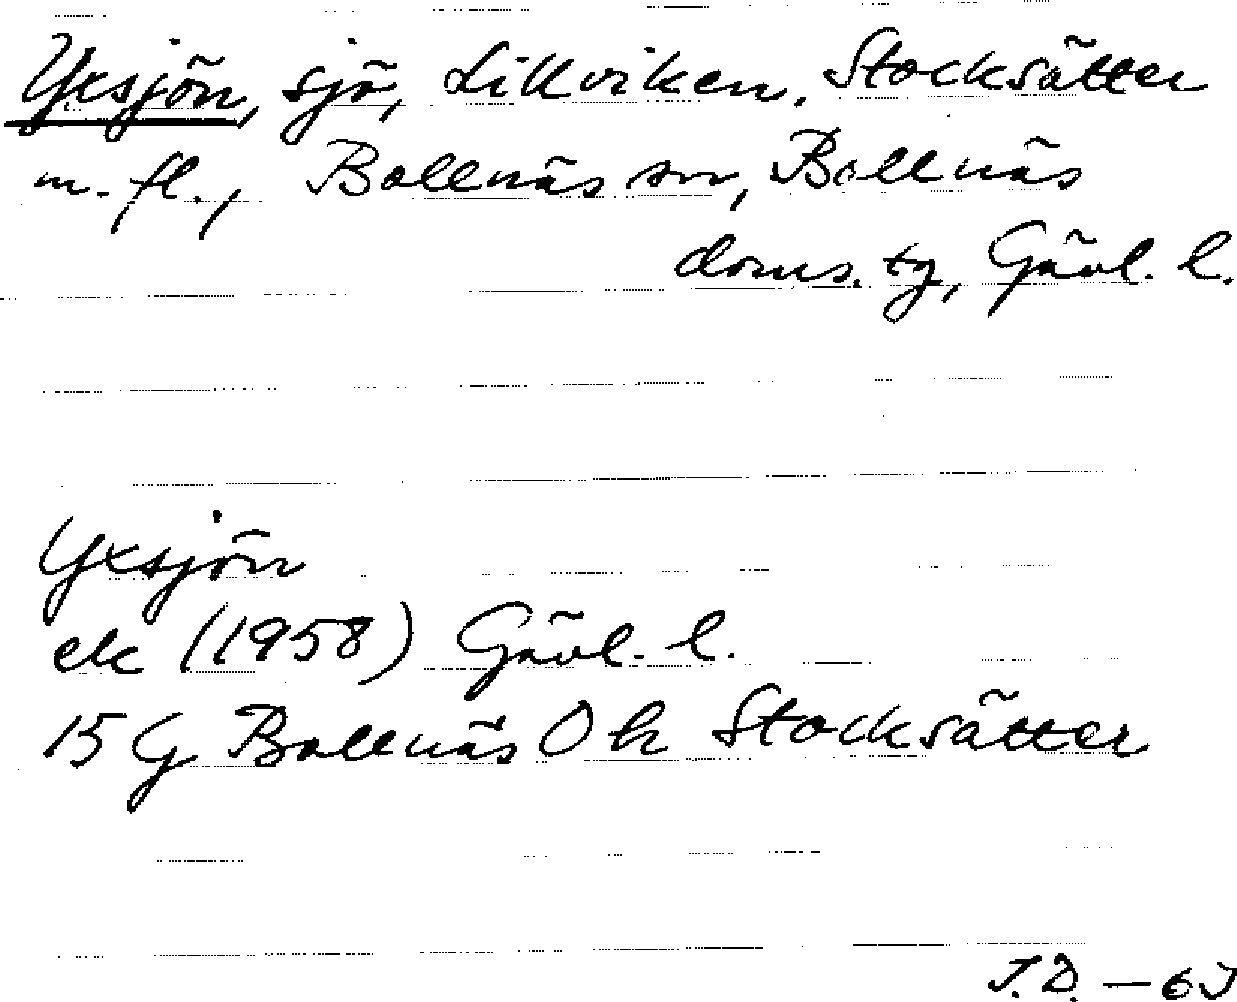 Yxsjön, sjö, Lillviken, Stocksätter
m. fl., Bollnäs sn, Bollnäs
doms. tg, Gävl. l.
Yxsjön
ek (1958) Gävl. l.
15 G Bollnäs O h Stocksätter
J.D. – 63